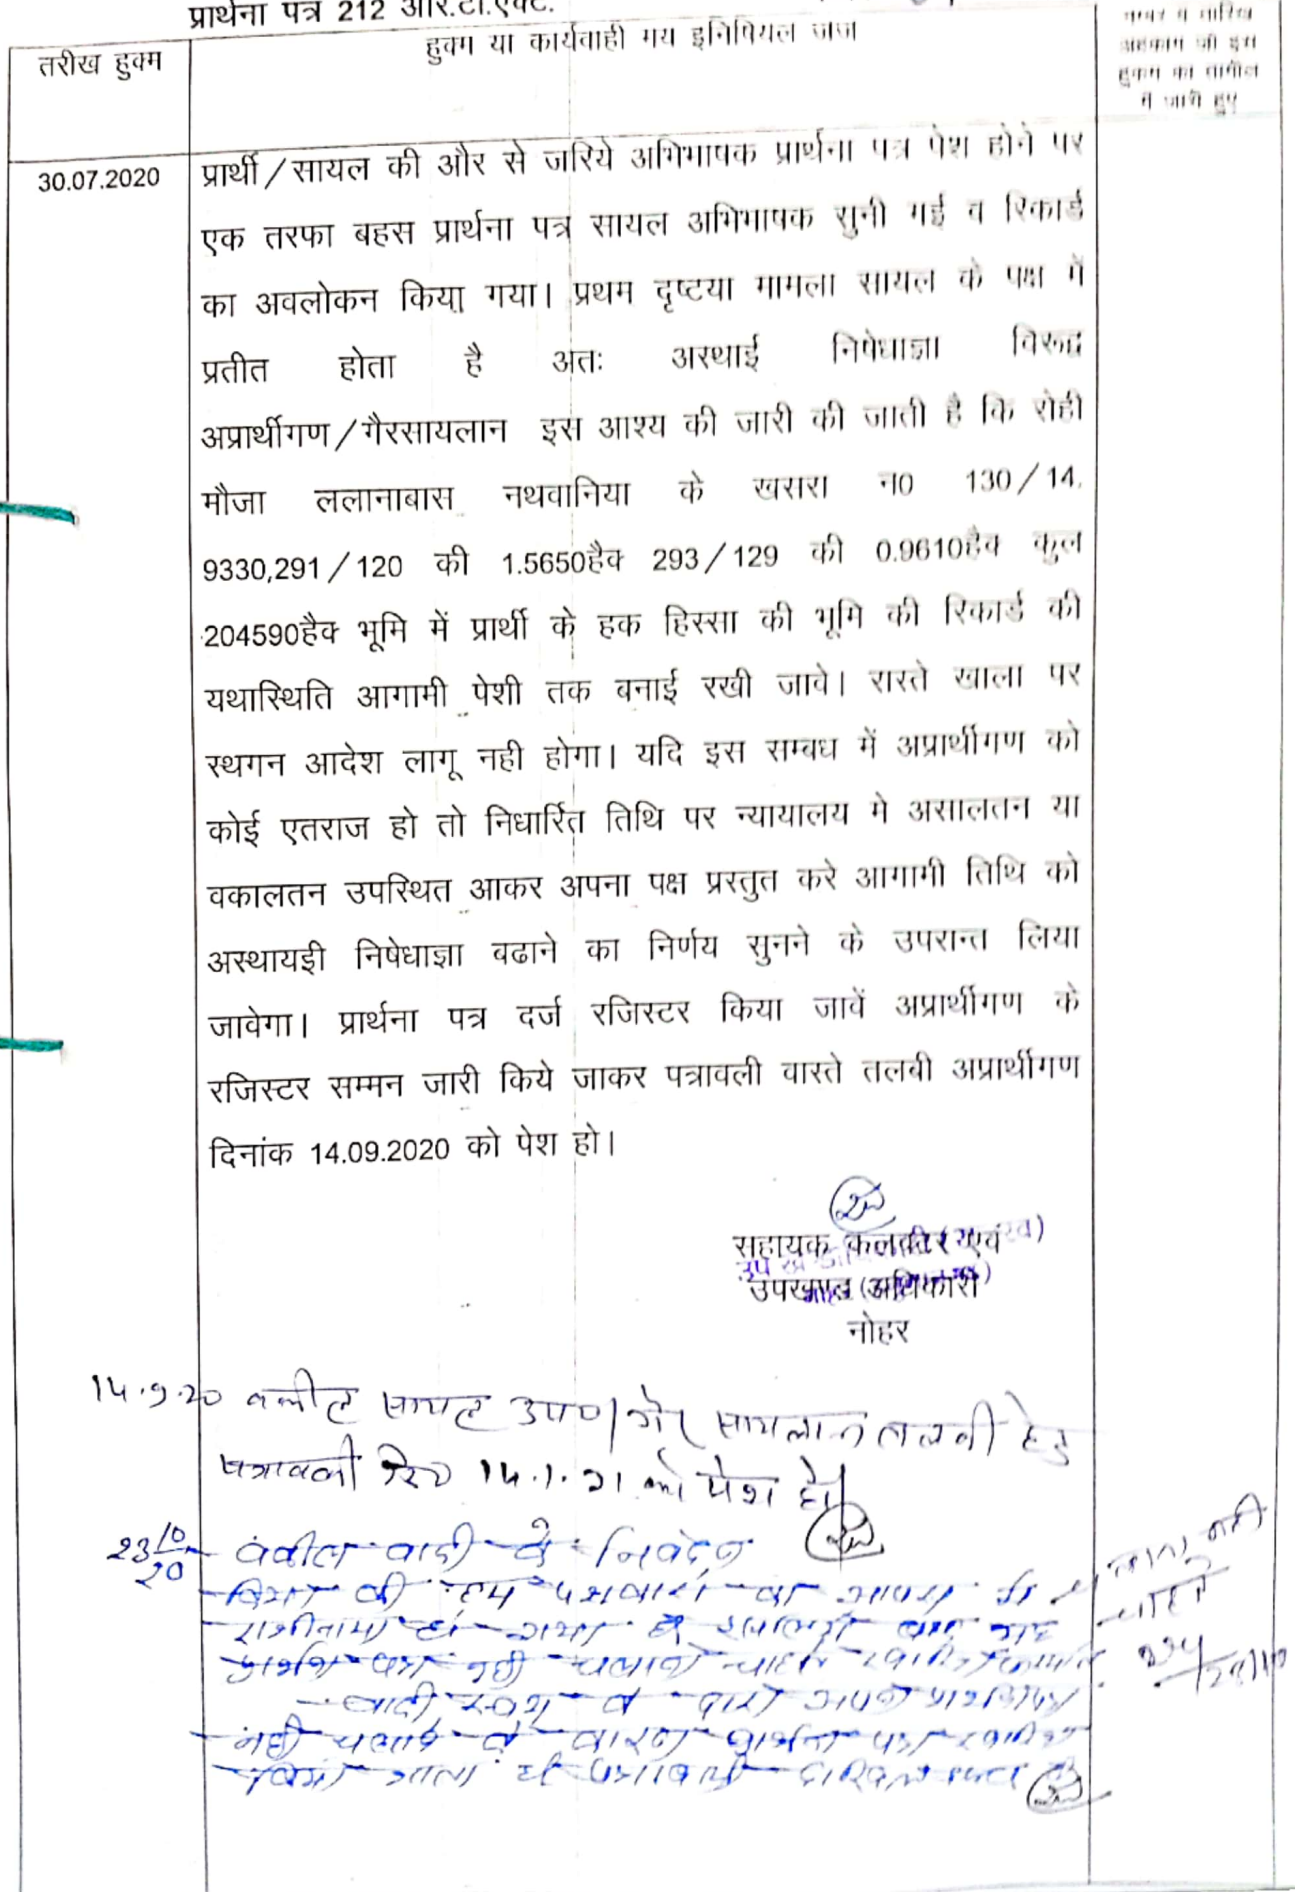 प्रार्थना पत्र 212 आर.टी.एक्ट.
तरीख हुक्म
हुक्म या कार्यवाही मय इनिषियल जज
नम्बर व तारिख
अहकाम जो इस
हुकम का तामील
में जारी हुए
30.07.2020
प्रार्थी/सायल की और से जरिये अभिभाषक प्रार्थना पत्र पेश होने पर
एक तरफा बहस प्रार्थना पत्र सायल अभिभाषक सुनी गई व रिकार्ड
का अवलोकन किया गया। प्रथम दृष्टया मामला सायल के पक्ष में
प्रतीत होता है अतः अस्थाई निषेधाज्ञा विरूद्ध
अप्रार्थीगण/गैरसायलान इस आश्य की जारी की जाती है कि रोही
मौजा ललानाबास नथवानिया के खसरा न0 130/14.
9330,291/120 की 1.5650हैक 293/129 की 0.9610हैक कुल
204590हैक भूमि में प्रार्थी के हक हिस्सा की भूमि की रिकार्ड की
यथास्थिति आगामी पेशी तक बनाई रखी जावे। रास्ते खाला पर
स्थगन आदेश लागू नही होगा। यदि इस सम्बध में अप्रार्थीगण को
कोई एतराज हो तो निधार्रित तिथि पर न्यायालय मे असालतन या
वकालतन उपस्थित आकर अपना पक्ष प्रस्तुत करे आगामी तिथि को
अस्थायइी निषेधाज्ञा बढाने का निर्णय सुनने के उपरान्त लिया
जावेगा। प्रार्थना पत्र दर्ज रजिस्टर किया जावें अप्रार्थीगण के
रजिस्टर सम्मन जारी किये जाकर पत्रावली वास्ते तलबी अप्रार्थीगण
दिनांक 14.09.2020 को पेश हो।
सहायक कलक्टर एवं
उपखण्ड अधिकारी
नोहर
14.9.20 वकील सायल उप0/गैर सायलान तलबी हेतु
पत्रावली दि0 14.1.21 को पेश हो।
23/10/20 वकील वादी ने निवेदन
किया की हम पक्षकारो का आपस में
राजीनामा हो गया है
प्रार्थना पत्र नही चलाना चाहते
वादी स्वयं के द्वारा अपना प्रार्थना पत्र
नही चलाने के कारण प्रार्थना पत्र खारिज
किया जाता है। पत्रावली दाखिल दफ्तर हो
चलाना नही
चाहते